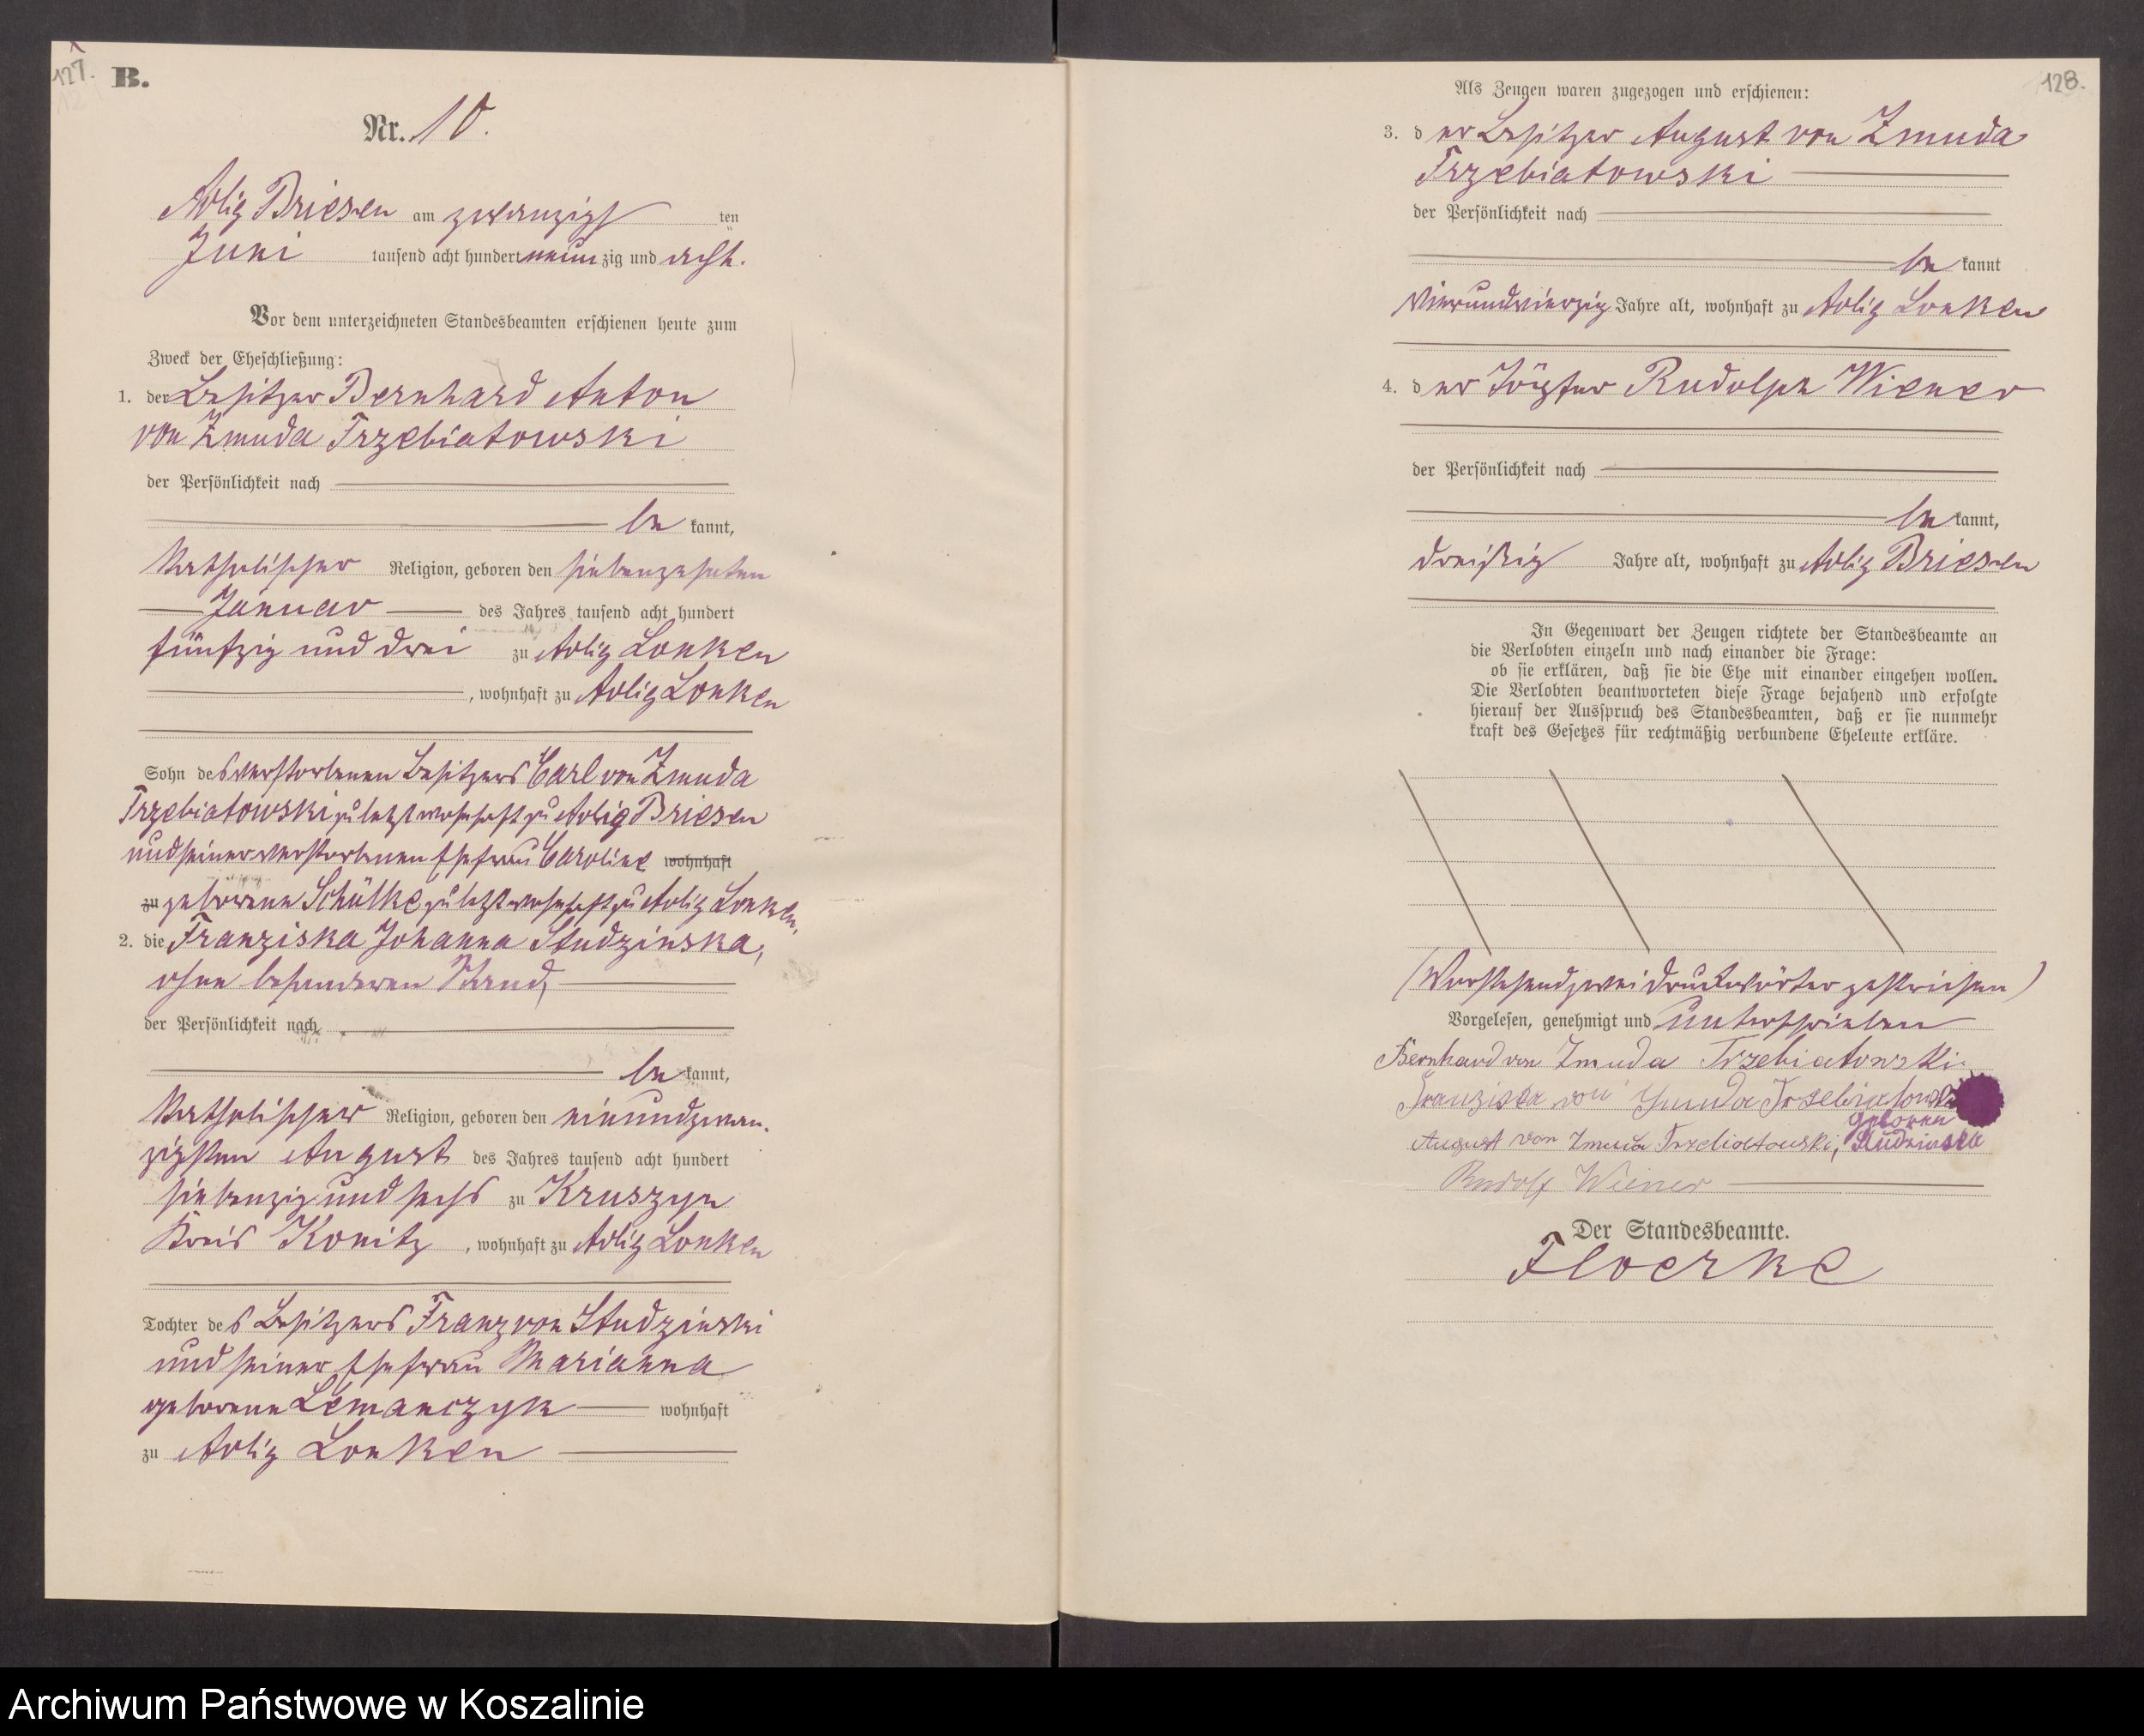 127.
B.
Nr. 10.
Adlig Briesen am zwanzigs ten
Juni tausend acht hundert neun zig und acht.
Vor dem unterzeichneten Standesbeamten erschienen heute zum
Zweck der Eheschließung:
1. der Besitzer Bernhard Anton
von Zmuda Trzebiatowski
der Persönlichkeit nach
be kannt,
katholischer Religion, geboren den siebenzehnten
Januar des Jahres tausend acht hundert
fünfzig und drei zu Adlig Lonken
, wohnhaft zu Adlig Lonken
Sohn des verstorbenen Besitzers Carl von Zmuda
Trzebiatowski zuletzt wohnhaft zu Adlig Briesen
und seiner verstorbenen Ehefrau Caroline wohnhaft
zu geborene Schülke zuletzt wohnhaft zu Adlig Lonken,
2. die Franziska Johanna Studzinska,
ohne besonderen Stand,
der Persönlichkeit nach
be kannt,
katholischer Religion, geboren den einundzwan-
zigsten August des Jahres tausend acht hundert
siebenzig und sechs zu Kruszyn
Kreis Konitz, wohnhaft zu Adlig Lonken
Tochter des Besitzers Franz von Studzinski
und seiner Ehefrau Marianna
geborene Lemanczyk wohnhaft
zu Adlig Lonken
128.
Als Zeugen waren zugezogen und erschienen:
3. der Besitzer August von Zmuda
Trzebiatowski
der Persönlichkeit nach
be kannt
vierundvierzig Jahre alt, wohnhaft zu Adlig Lonken
4. der Rudolph Wiener
der Persönlichkeit nach
be kannt,
dreißig Jahre alt, wohnhaft zu Adlig Briesen
In Gegenwart der Zeugen richtete der Standesbeamte an
die Verlobten einzeln und nach einander die Frage:
ob sie erklären, daß sie die Ehe mit einander eingehen wollen.
Die Verlobten beantworteten diese Frage bejahend und erfolgte
hierauf der Ausspruch des Standesbeamten, daß er sie nunmehr
kraft des Gesetzes für rechtmäßig verbundene Eheleute erkläre.
(Vorstehend zwei Druckwörter gestrichen)
Vorgelesen, genehmigt und unterschrieben
Bernhard von Zmuda Trzebiatowski
Franziska von Zmuda Trzebiatowski
geborene
August von Zmuda Trzebiatowski, Studzinska
Rudolf Wiener
Der Standesbeamte.
Floerke
Archiwum Państwowe w Koszalinie